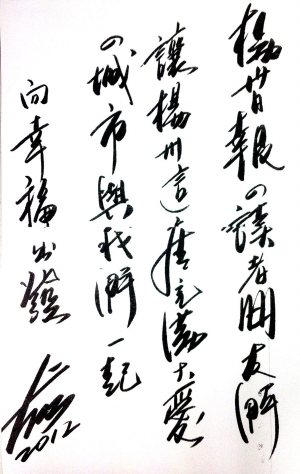 揚州日報の讀者朋友們
讓揚州這座充滿大愛
の城市與我們一起
向幸福出發
2012